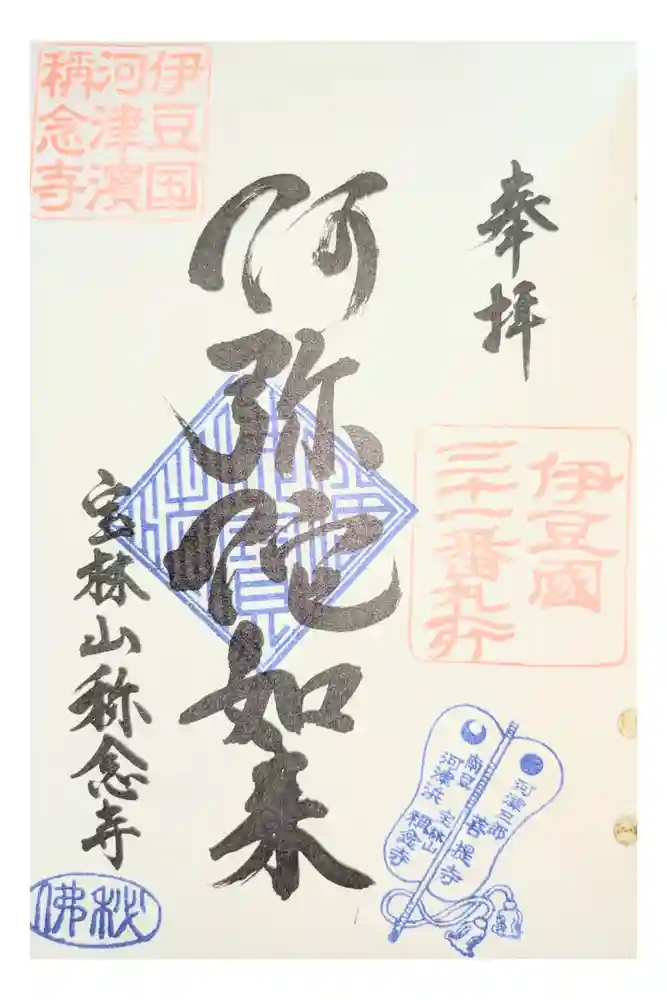 奉拝
伊豆國
三十一番札所
阿弥陀如来
宝林山称念寺
伊豆国
河津濱
稱念寺
河津三郎
菩提寺
南豆
河津浜
宝林山
稱念寺